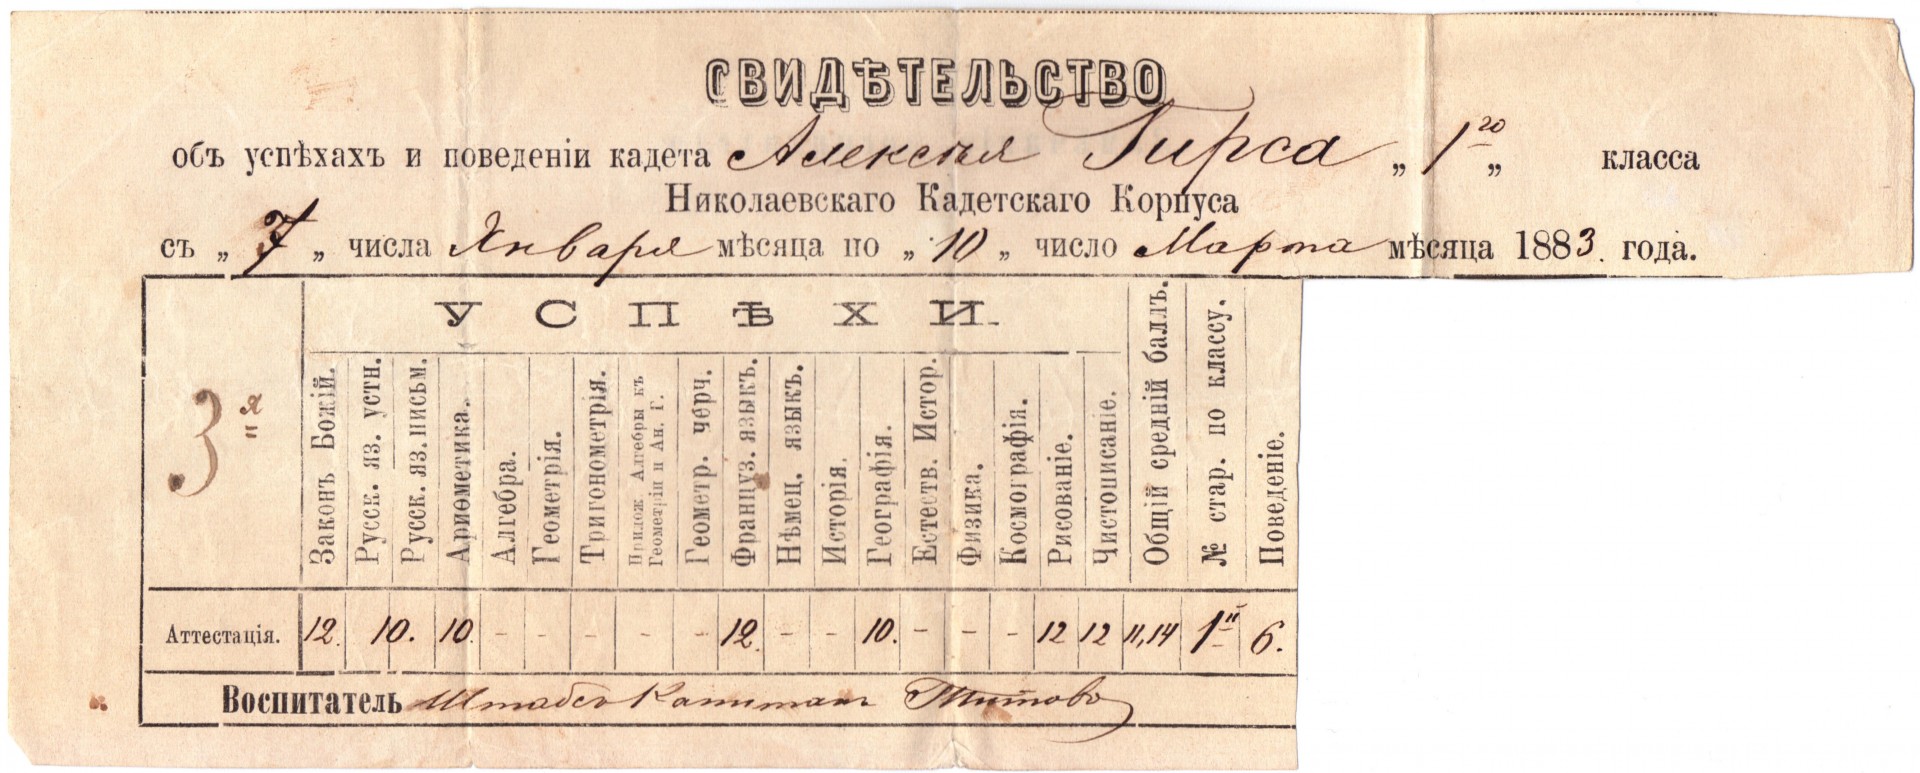 СВИДѢТЕЛЬСТВО
объ успѣхахъ и поведеніи кадета Алексѣя Гирса „ 1го „ класса
Николаевскаго Кадетскаго Корпуса
съ „ 7 „ числа Января мѣсяца по „ 10 „ число Марта мѣсяца 1883. года.
УСПѢХИ.
3я
Законъ Божій.
Русск. яз. устн.
Русск. яз. письм.
Ариѳметика.
Алгебра.
Геометрія.
Тригонометрія.
Прилож Алгебры къ
Геометріи и Ан. Г.
Геометр. черч.
Француз. языкъ.
Нѣмец. языкъ.
Исторія.
Географія.
Естеств. Истор.
Физика.
Космографія.
Рисованіе.
Чистописаніе.
Общій средній баллъ.
№ стар. по классу.
Поведеніе.
Аттестація. 12. 10. 10. - - - - - 12. - - 10. - - - 12 12 11,14 1й 6.
Воспитатель Штабсъ Капитанъ Титовъ